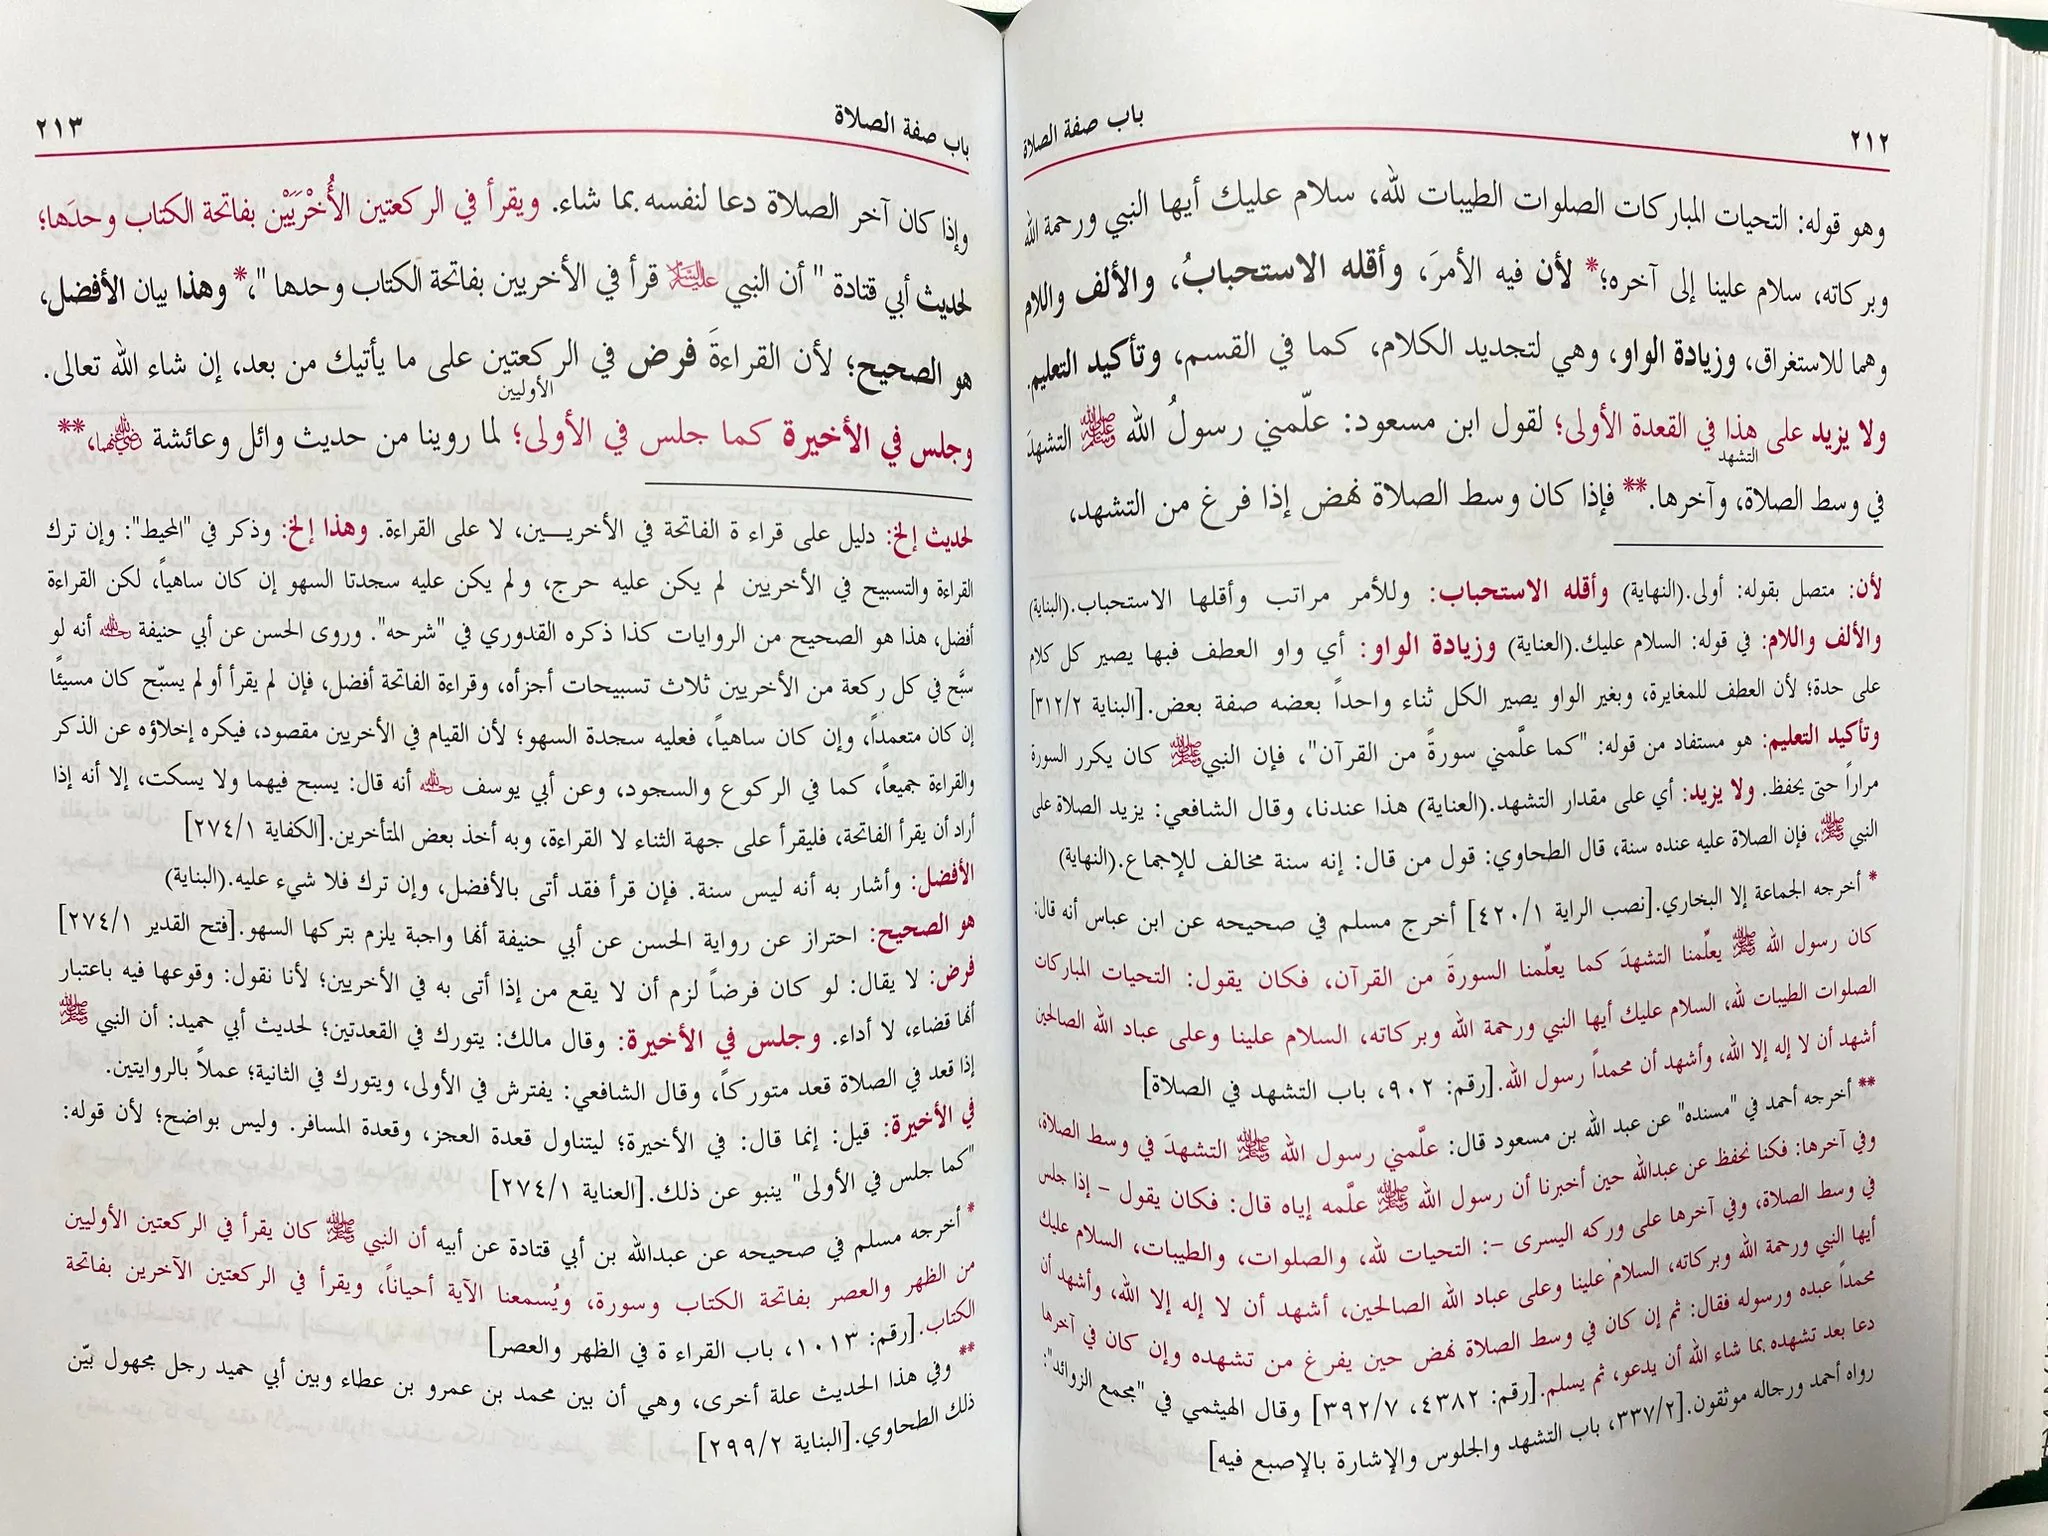 ٢١٢
باب صفة الصلاة
وهو قوله: التحيات المباركات الصلوات الطيبات لله، سلام عليك أيها النبي ورحمة الله
وبركاته، سلام علينا إلى آخره؛* لأن فيه الأمرَ، وأقله الاستحبابُ، والألف واللام
وهما للاستغراق، وزيادة الواو، وهي لتجديد الكلام، كما في القسم، وتأكيد التعليم.
ولا يزيد على هذا في القعدة الأولى؛ لقول ابن مسعود: علّمني رسولُ الله ﷺ التشهدَ
التشهد
في وسط الصلاة، وآخرها.** فإذا كان وسط الصلاة نهض إذا فرغ من التشهد،
لأن: متصل بقوله: أولى.(النهاية) وأقله الاستحباب: وللأمر مراتب وأقلها الاستحباب.(البناية)
والألف واللام: في قوله: السلام عليك.(العناية) وزيادة الواو: أي واو العطف فبها يصير كل كلام
على حدة؛ لأن العطف للمغايرة، وبغير الواو يصير الكل ثناء واحداً بعضه صفة بعض.[البناية ٣١٢/٢]
وتأكيد التعليم: هو مستفاد من قوله: "كما علَّمني سورةً من القرآن"، فإن النبي ﷺ كان يكرر السورة
مراراً حتى يحفظ. ولا يزيد: أي على مقدار التشهد.(العناية) هذا عندنا، وقال الشافعي: يزيد الصلاة على
النبي ﷺ، فإن الصلاة عليه عنده سنة، قال الطحاوي: قول من قال: إنه سنة مخالف للإجماع.(النهاية)
* أخرجه الجماعة إلا البخاري.[نصب الراية ٤٢٠/١] أخرج مسلم في صحيحه عن ابن عباس أنه قال:
كان رسول الله ﷺ يعلّمنا التشهدَ كما يعلّمنا السورةَ من القرآن، فكان يقول: التحيات المباركات
الصلوات الطيبات لله، السلام عليك أيها النبي ورحمة الله وبركاته، السلام علينا وعلى عباد الله الصالحين
أشهد أن لا إله إلا الله، وأشهد أن محمداً رسول الله.[رقم: ٩٠٢، باب التشهد في الصلاة]
** أخرجه أحمد في "مسنده" عن عبد الله بن مسعود قال: علَّمني رسول الله ﷺ التشهدَ في وسط الصلاة،
وفي آخرها: فكنا نحفظ عن عبدالله حين أخبرنا أن رسول الله ﷺ علَّمه إياه قال: فكان يقول – إذا جلس
في وسط الصلاة، وفي آخرها على وركه اليسرى –: التحيات لله، والصلوات، والطيبات، السلام عليك
أيها النبي ورحمة الله وبركاته، السلام علينا وعلى عباد الله الصالحين، أشهد أن لا إله إلا الله، وأشهد أن
محمداً عبده ورسوله فقال: ثم إن كان في وسط الصلاة نهض حين يفرغ من تشهده وإن كان في آخرها
دعا بعد تشهده بما شاء الله أن يدعو، ثم يسلم.[رقم: ٤٣٨٢، ٣٩٢/٧] وقال الهيثمي في "مجمع الزوائد":
رواه أحمد ورجاله موثقون.[٣٣٧/٢، باب التشهد والجلوس والإشارة بالإصبع فيه]
باب صفة الصلاة
٢١٣
وإذا كان آخر الصلاة دعا لنفسه بما شاء. ويقرأ في الركعتين الأُخْرَيَيْن بفاتحة الكتاب وحدَها؛
لحديث أبي قتادة " أن النبي عليه السلام قرأ في الأخريين بفاتحة الكتاب وحدها "،* وهذا بيان الأفضل،
هو الصحيح؛ لأن القراءةَ فرض في الركعتين على ما يأتيك من بعد، إن شاء الله تعالى.
الأوليين
وجلس في الأخيرة كما جلس في الأولى؛ لما روينا من حديث وائل وعائشة رضي الله عنهما،**
لحديث إلخ: دليل على قراءة الفاتحة في الأخريـــين، لا على القراءة. وهذا إلخ: وذكر في "المحيط": وإن ترك
القراءة والتسبيح في الأخريين لم يكن عليه حرج، ولم يكن عليه سجدتا السهو إن كان ساهياً، لكن القراءة
أفضل، هذا هو الصحيح من الروايات كذا ذكره القدوري في "شرحه". وروى الحسن عن أبي حنيفة رحمه الله أنه لو
سبَّح في كل ركعة من الأخريين ثلاث تسبيحات أجزأه، وقراءة الفاتحة أفضل، فإن لم يقرأ أولم يسبّح كان مسيئًا
إن كان متعمداً، وإن كان ساهياً، فعليه سجدة السهو؛ لأن القيام في الأخريين مقصود، فيكره إخلاؤه عن الذكر
والقراءة جميعاً، كما في الركوع والسجود، وعن أبي يوسف رحمه الله أنه قال: يسبح فيهما ولا يسكت، إلا أنه إذا
أراد أن يقرأ الفاتحة، فليقرأ على جهة الثناء لا القراءة، وبه أخذ بعض المتأخرين.[الكفاية ٢٧٤/١]
الأفضل: وأشار به أنه ليس سنة. فإن قرأ فقد أتى بالأفضل، وإن ترك فلا شيء عليه.(البناية)
هو الصحيح: احتراز عن رواية الحسن عن أبي حنيفة أنها واجبة يلزم بتركها السهو.[فتح القدير ٢٧٤/١]
فرض: لا يقال: لو كان فرضاً لزم أن لا يقع من إذا أتى به في الأخريين؛ لأنا نقول: وقوعها فيه باعتبار
أنها قضاء، لا أداء. وجلس في الأخيرة: وقال مالك: يتورك في القعدتين؛ لحديث أبي حميد: أن النبي ﷺ
إذا قعد في الصلاة قعد متوركاً، وقال الشافعي: يفترش في الأولى، ويتورك في الثانية؛ عملاً بالروايتين.
في الأخيرة: قيل: إنما قال: في الأخيرة؛ ليتناول قعدة العجز، وقعدة المسافر. وليس بواضح؛ لأن قوله:
"كما جلس في الأولى" ينبو عن ذلك.[العناية ٢٧٤/١]
* أخرجه مسلم في صحيحه عن عبدالله بن أبي قتادة عن أبيه أن النبي ﷺ كان يقرأ في الركعتين الأوليين
من الظهر والعصر بفاتحة الكتاب وسورة، ويُسمعنا الآية أحياناً، ويقرأ في الركعتين الآخرين بفاتحة
الكتاب.[رقم: ١٠١٣، باب القراءة في الظهر والعصر]
** وفي هذا الحديث علة أخرى، وهي أن بين محمد بن عمرو بن عطاء وبين أبي حميد رجل مجهول بيّن
ذلك الطحاوي.[البناية ٢٩٩/٢]